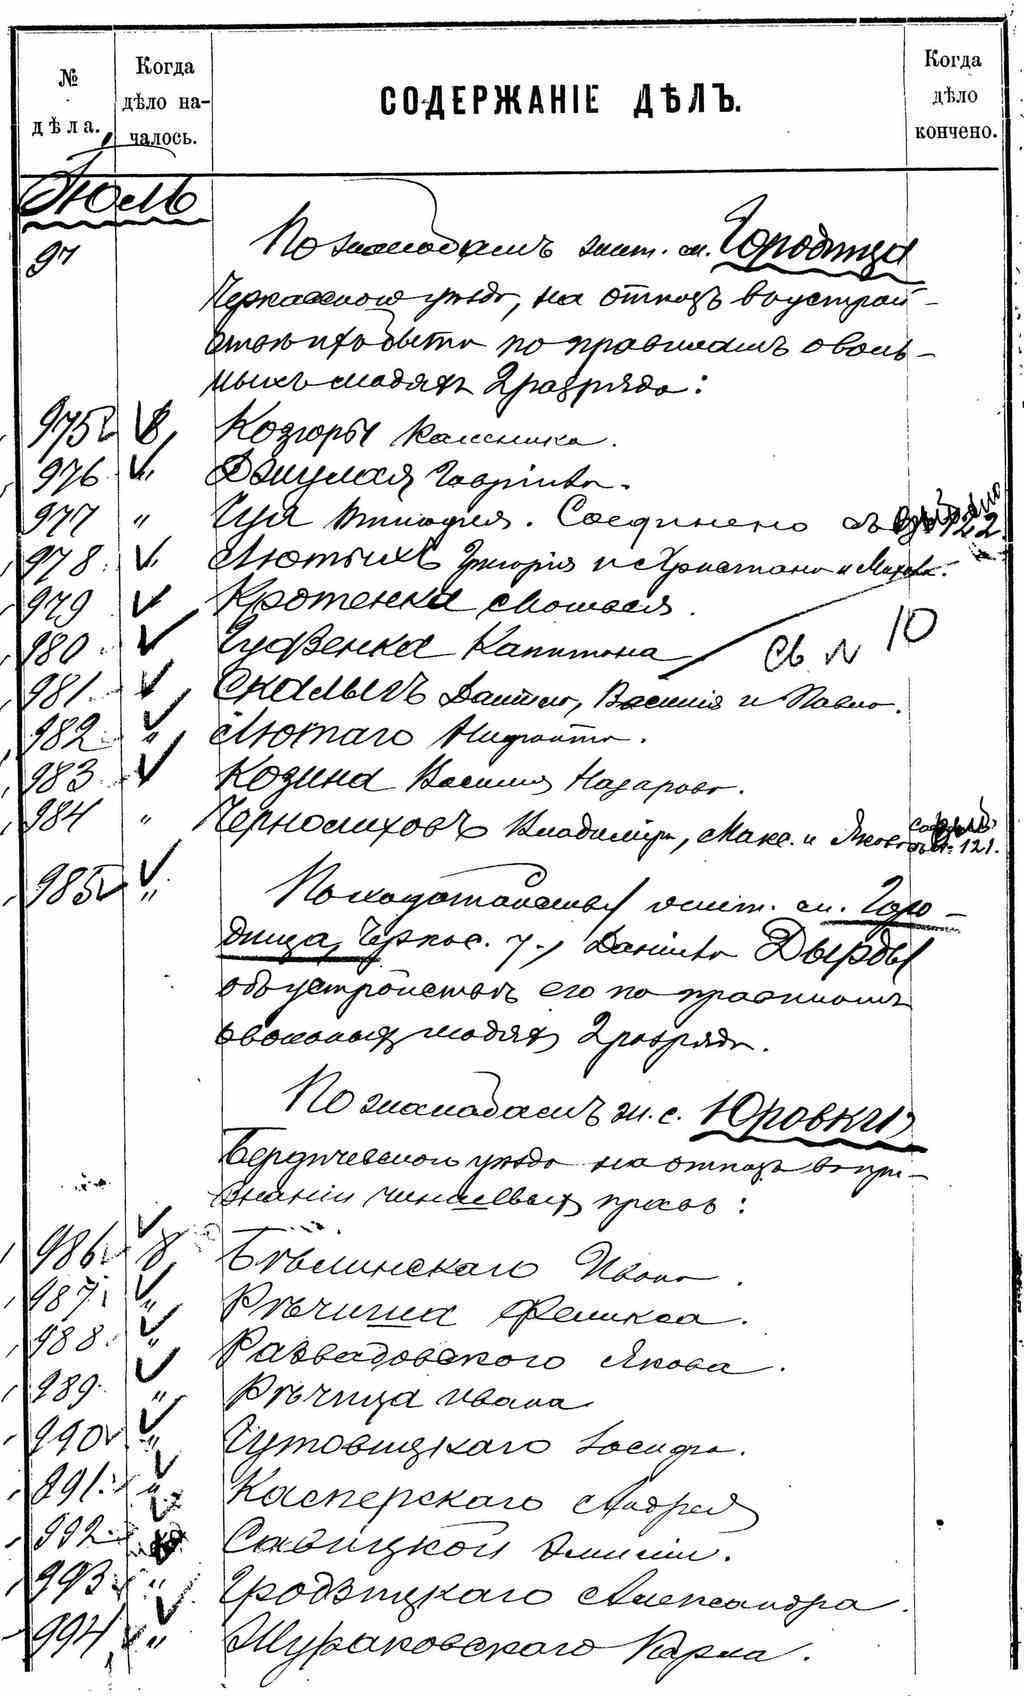 № дѣла.
Когда дѣло началось.
СОДЕРЖАНІЕ ДѢЛЪ.
Когда дѣло кончено.
Іюль
97 По жалобамъ жит. м. Городища
Черкасскаго уѣзда, на отказъ въ устрой-
ствѣ ихъ быта по правиламъ о воль-
ныхъ людяхъ 2 разряда:
975 8 Козюры Калиника.
976 " Гавріила.
977 " Гуя Тимофея. Соединено съ 122
978 " Лютыхъ Григорія и Христіана и
979 Кротенка Моисея.
980 Гудзенка Капитона съ № 10
981 Скалыхъ Даніила, Василія и Павла.
982 " Лютаго Нифонта.
983 Козина Василія Назарова.
984 " Черномуховъ Владиміра, Макс. и Якова 121.
985 " По ходатайству жит. м. Горо-
дища, Черкас. у., Даніила Дырды
объ устройствѣ его по правиламъ
о вольныхъ людяхъ 2 разряда.
По жалобамъ ж. с. Юровки
Бердичевскаго уѣзда на отказъ въ при-
знаніи чиншевыхъ правъ:
986 8 Бѣлинскаго Ивана.
987 " Рѣчица Феликса.
988 " Развадовского Якова.
989 " Рѣчица Ивана
990 " Гутовицкаго Іосифа.
991 " Касперскаго Андрея
992 Савицкой Эмиліи.
993 " Гродзицкаго Александра.
994 " Жураковского Карла.